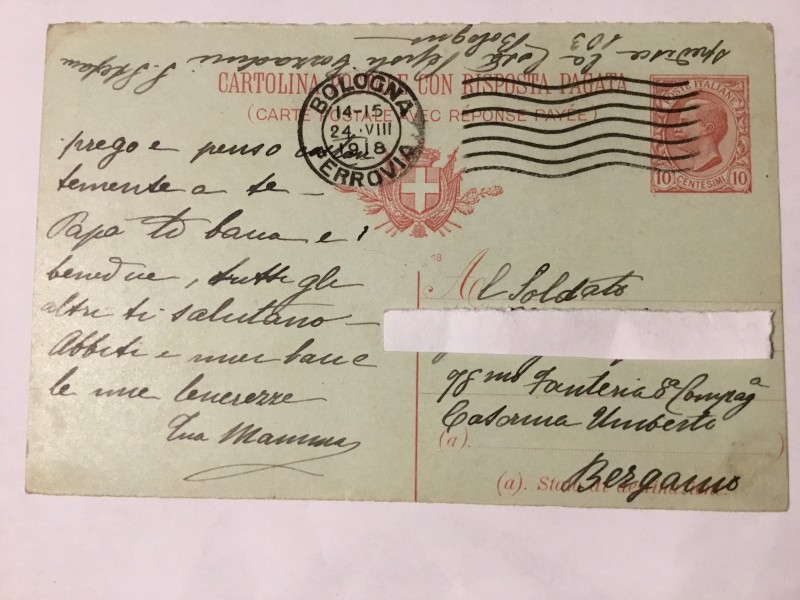 Spedisce La
103
Bologna
S. Stefani
CARTOLINA CON RISPOSTA PAGATA
(CARTE POSTALE AVEC RÉPONSE PAYÉE)
BOLOGNA
14-15
24.VIII
1918
FERROVIA
POSTE ITALIANE
10 CENTESIMI 10
prego e penso
temente a te —
Papà ti bacia e
benedice, tutti gli
altri ti salutano —
Abbiti e miei baci e
le mie tenerezze
Tua Mamma
18
Al Soldato
98mo Fanteria 8a Compaga
Caserma Umberto
(a).
Bergamo
(a). Stato di destinazione.